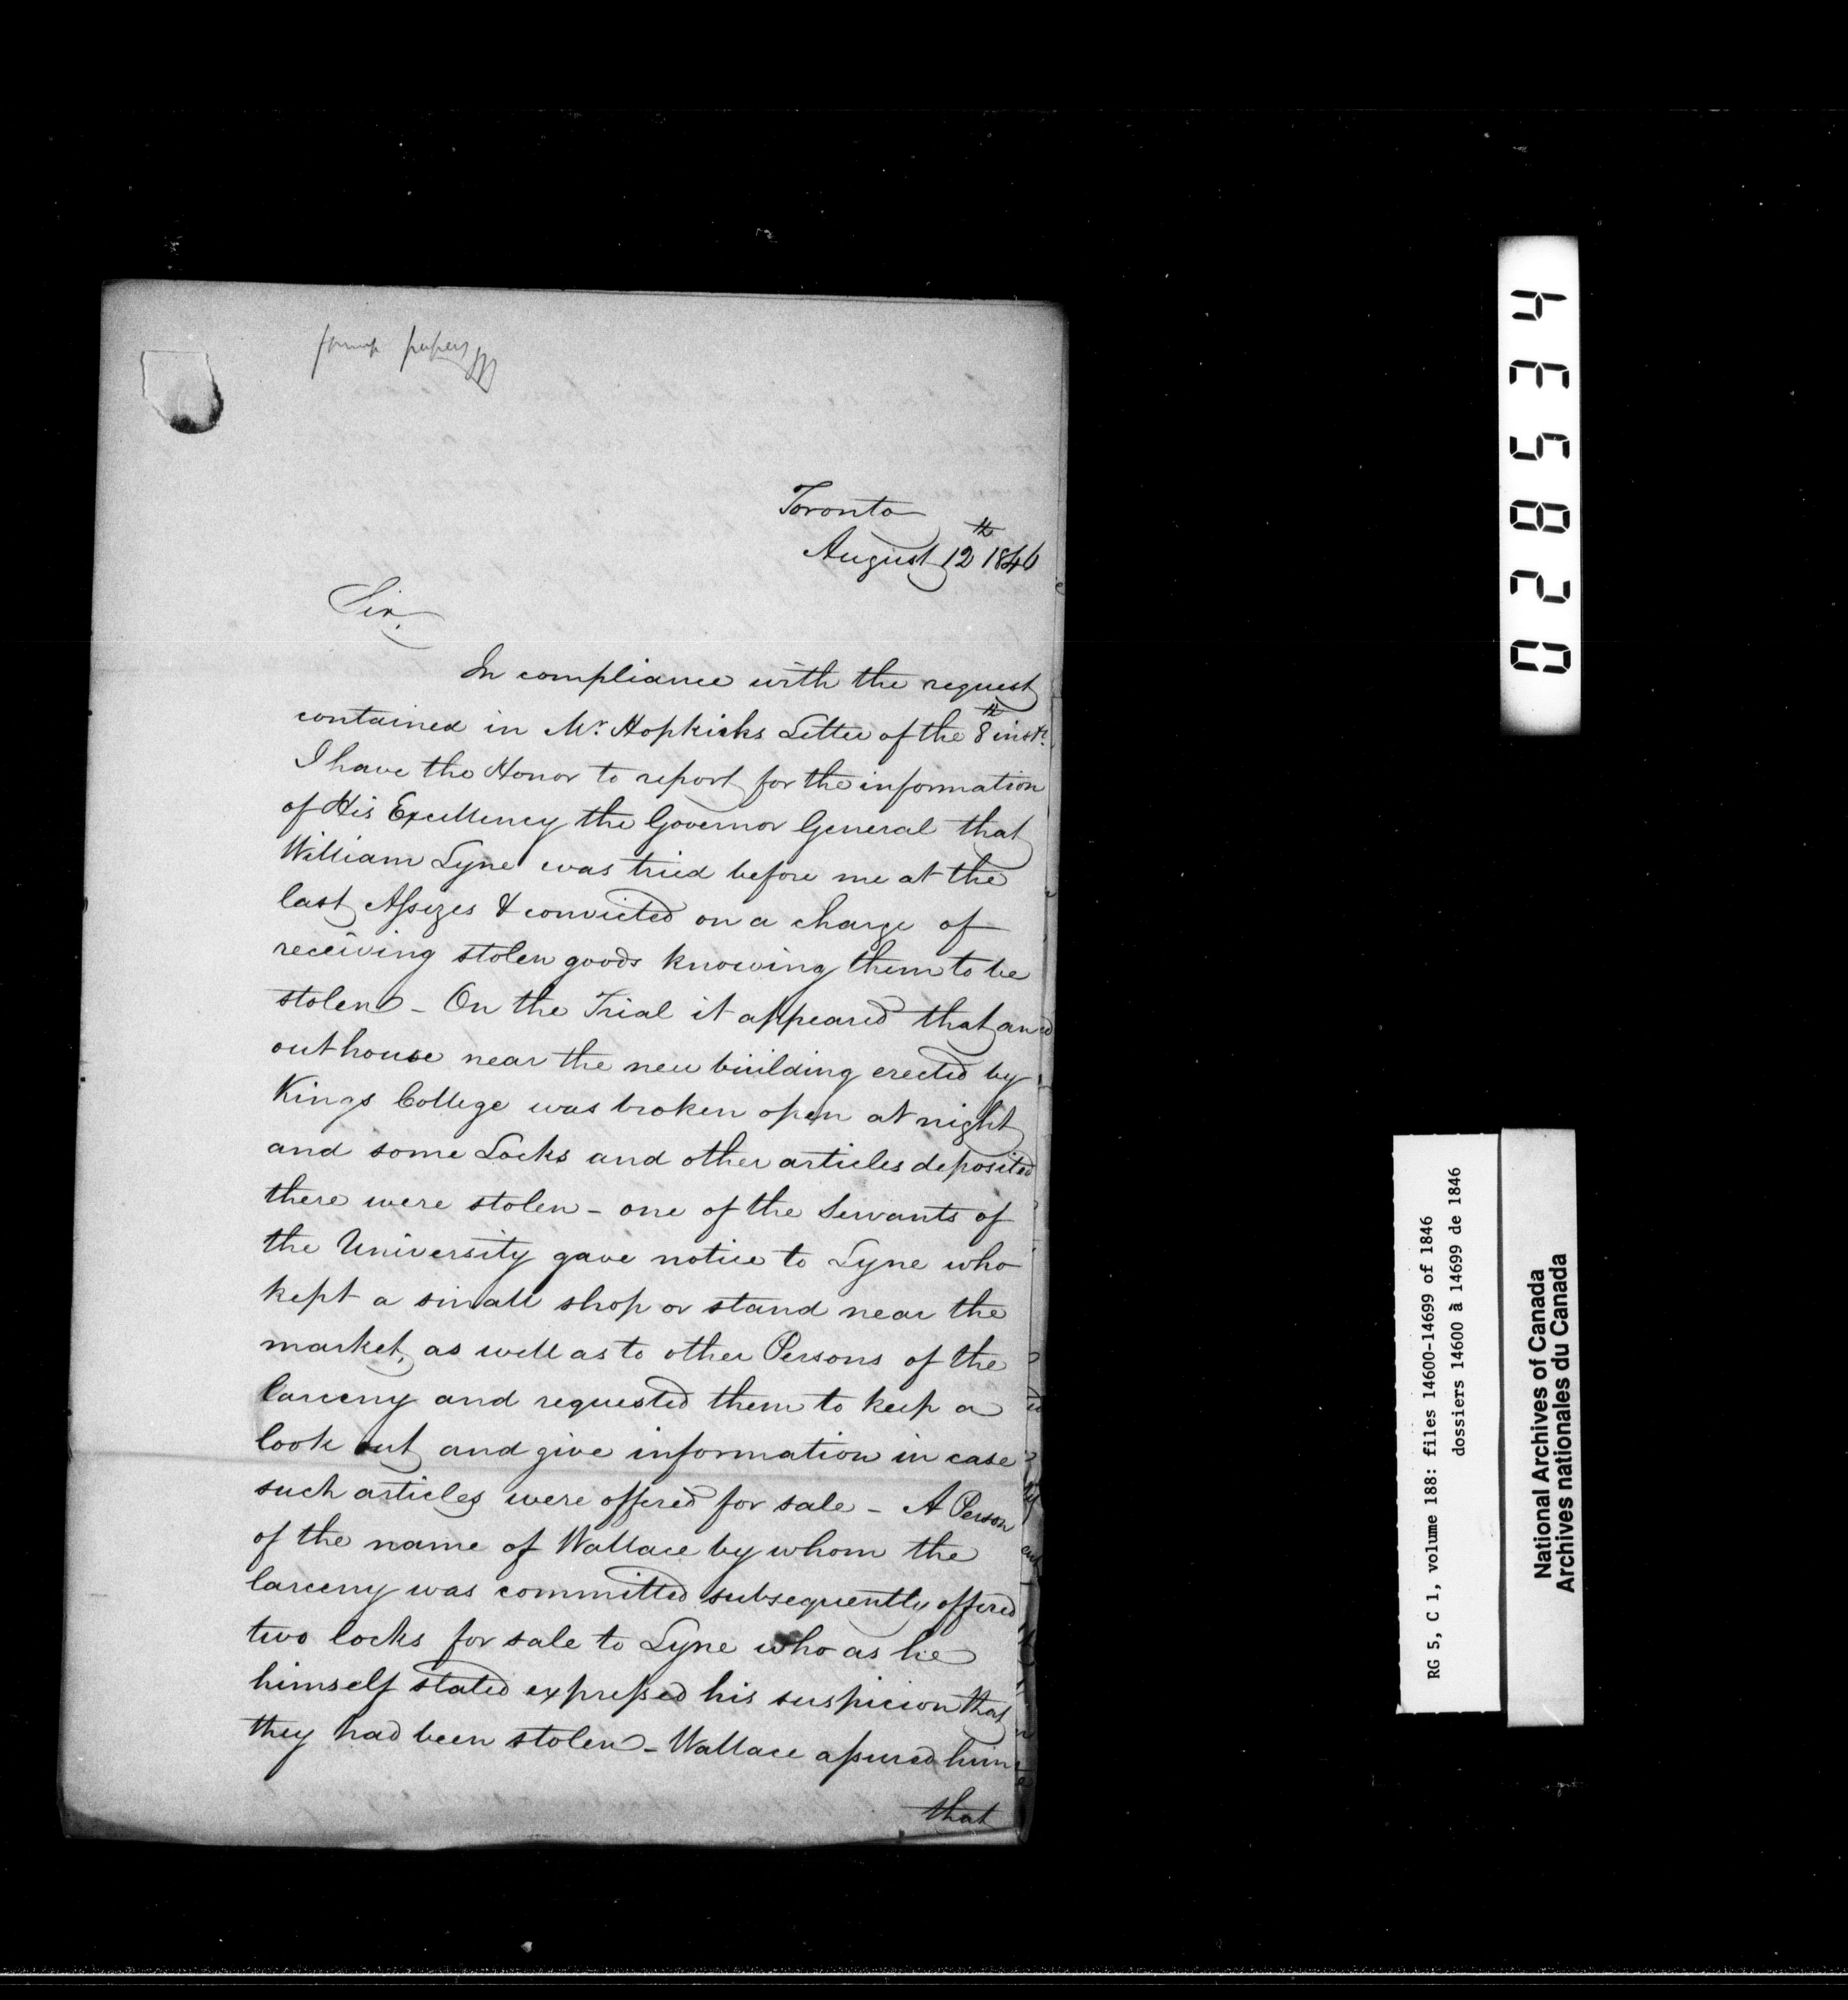 papers
Toronto
August 12th 1846
Sir,
In compliance with the request
contained in Mr. Hopkirks Letter of the 8th inst.
I have the Honor to report for the information
of His Excellency the Governor General that
William Lyne was tried before me at the
last Assizes & convicted on a charge of
receiving stolen goods knowing them to be
stolen - On the Trial it appeared that an
outhouse near the new building erected by
Kings College was broken open at night
and some Locks and other articles deposited
there were stolen - one of the Servants of
the University gave notice to Lyne who
kept a small shop or stand near the
market, as well as to other Persons of the
larceny and requested them to keep a
look out and give information in case
such articles were offered for sale - A Person
of the name of Wallace by whom the
larceny was committed subsequently offered
two locks for sale to Lyne who as he
himself stated expressed his suspicion that
they had been stolen - Wallace assured him
that
028534
RG 5, C 1, volume 188: files 14600-14699 of 1846
dossiers 14600 à 14699 de 1846
National Archives of Canada
Archives nationales du Canada